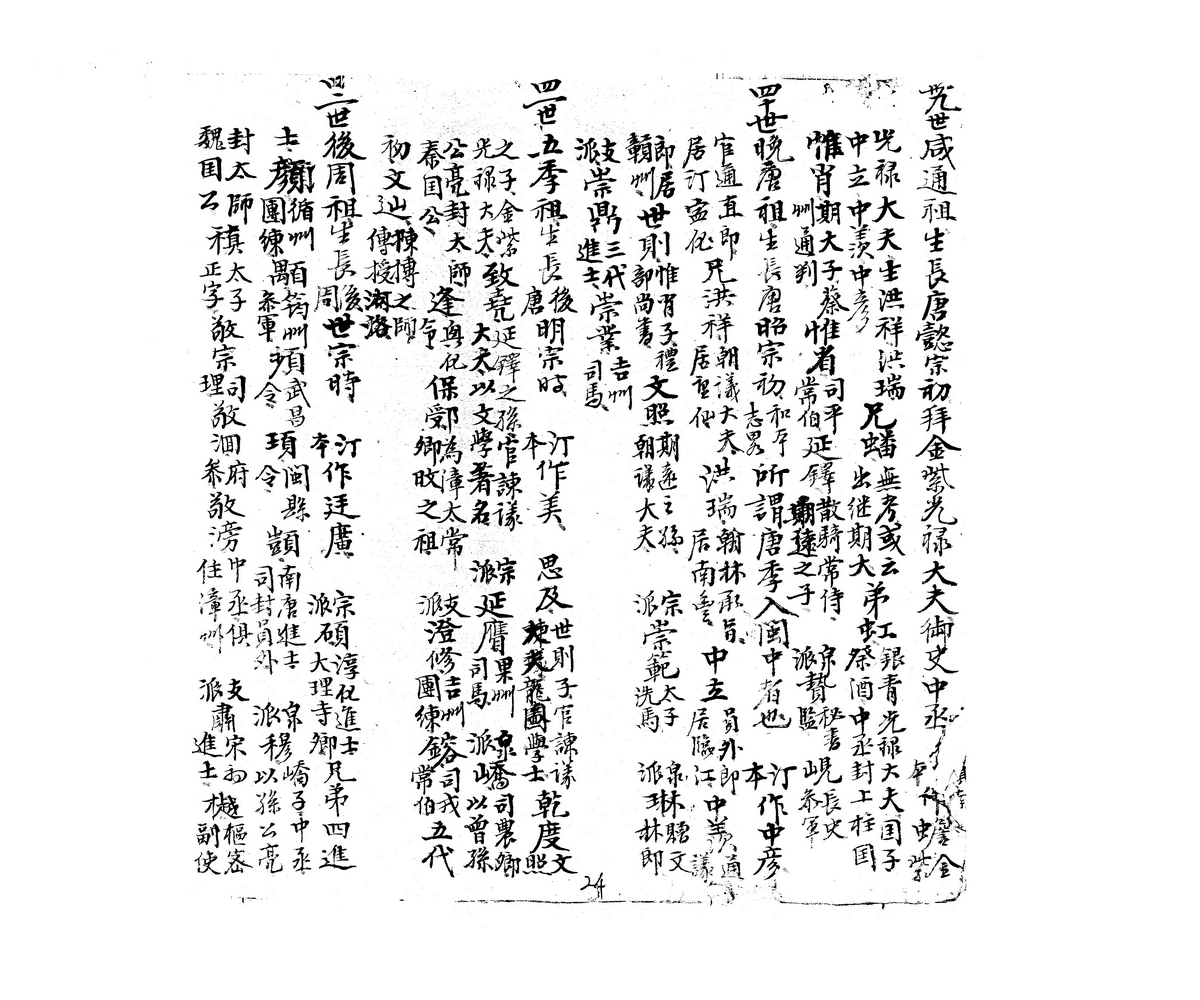 卅九世咸通祖生長唐懿宗初拜金紫光祿大夫御史中丞
汀本作虫詹金紫
光祿大夫生洪祥洪瑞兄蟠無考或云出継期大弟虹銀青光祿大夫国子祭酒中丞封上柱国
中立中羨中彦
惟肖期大子州通判蔡惟省司平常伯延鐸散騎常侍期遠之子泉派贄秘書監峴長史参軍
四十世晚唐祖生長唐昭宗初和平志畧所謂唐季入閩中者也汀本作中彦
官通直郎居汀寍化兄洪祥朝議大夫居寍化洪瑞翰林承旨居南豐中立員外郎居臨江中羨通議
即居贑州世則惟肖子禮部尚書文照期遠之孫朝議大夫宗派崇範太子洗馬泉派琳林贈文林郎
支派崇鼎三代進士崇業吉州司馬
四一世五季祖生長後唐明宗時汀本作美思及世則子官諫議諫大夫龍圖學士乾度文照
之子金紫光祿大夫致堯延鐸之孫官諫議大夫以文學著名宗派延膺果州司馬泉派嶠司農卿以曾孫
公亮封太師秦国公逢興化令保鄭為漳太常卿旼之祖支派澄修吉州團練鎔司戎常伯五代
初文辿陳摶之師傳授海路
四二世後周祖生長後周世宗時汀本作廷廣宗派碩淳化進士大理寺卿兄弟四進
士顏循州團練顒筠州參軍頊武昌令頊閩縣令顗南唐進士司封員外泉派穆嶠子中丞以孫公亮
封太師魏国公稹太子正字敬宗司理敬洄府參敬滂中丞俱住漳州支派肅宋初進士樾樞密副使
24